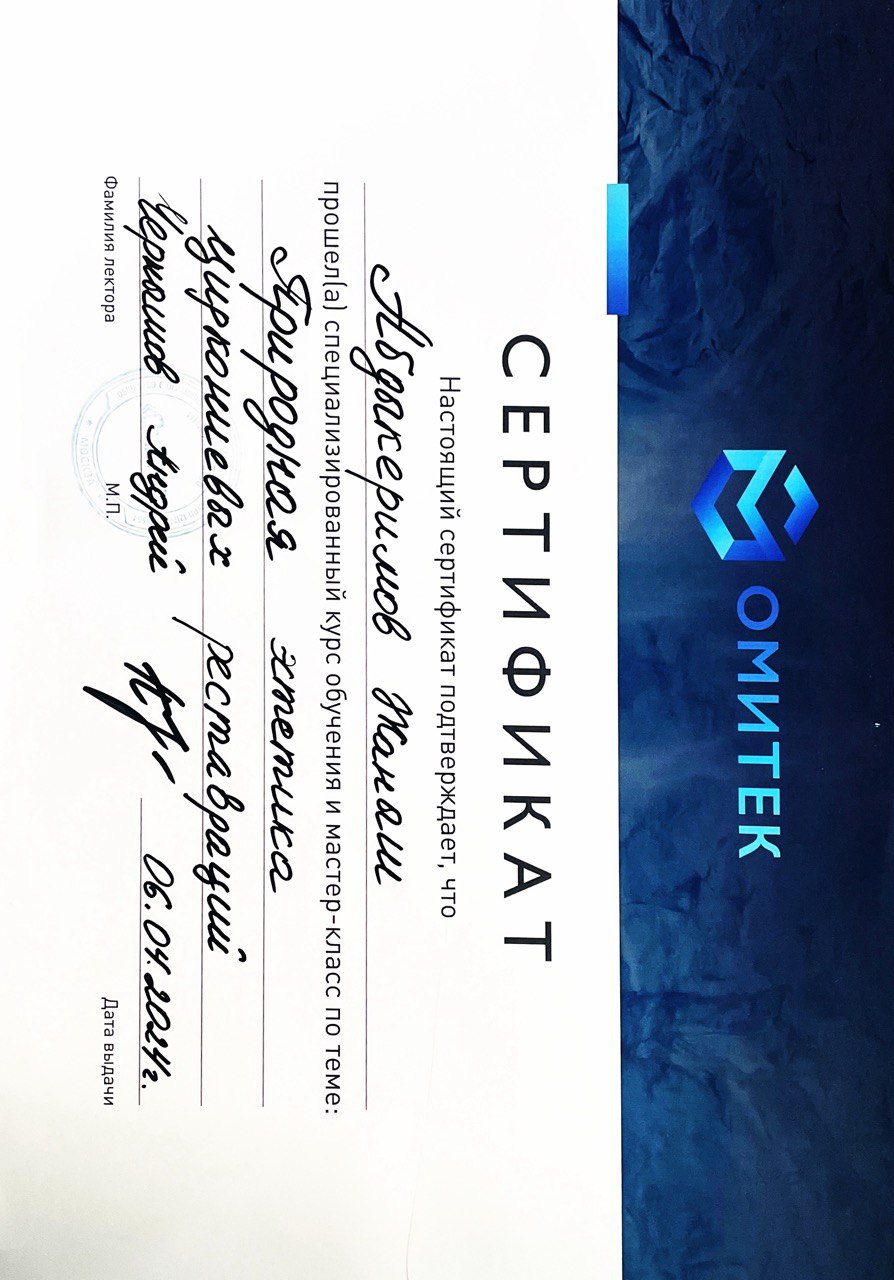 ОМИТЕК
СЕРТИФИКАТ
Настоящий сертификат подтверждает, что
Абдыкеримов Жаныш
прошел(а) специализированный курс обучения и мастер-класс по теме:
Природная эстетика
циркониевых реставраций
Чернышов Андрей 06.04.2024г.
Фамилия лектора М.П. Дата выдачи
МОСКВА